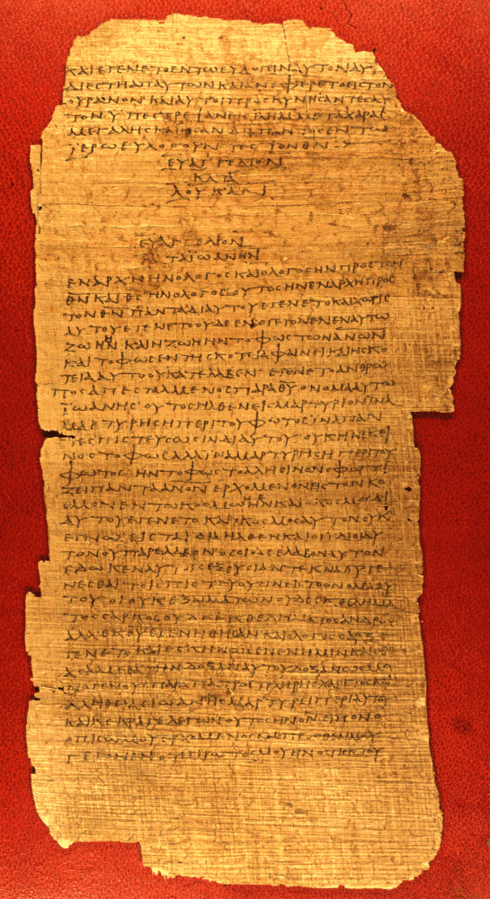 ΚΑΙΕΓΕΝΕΤΟΕΝΤΩΕΥΛΟΓΕΙΝΑΥΤΟΝΑΥ
ΔΙΕΣΤΗΑΠΑΥΤΩΝΚΑΙΑΝΕΦΕΡΕΤΟΕΙΣΤΟΝ
ΟΥΡΑΝΟΝΚΑΙΑΥΤΟΙΠΡΟΣΚΥΝΗΣΑΝΤΕΣΑΥ
ΤΟΝΥΠΕΣΤΡΕΨΑΝΕΙΣΙΛΗΜΜΕΤΑΧΑΡΑΣ
ΜΕΓΑΛΗΣΚΑΙΗΣΑΝΔΙΑΠΑΝΤΟΣΕΝΤΩ
ΙΕΡΩΕΥΛΟΓΟΥΝΤΕΣΤΟΝΘΝ
ΕΥΑΓΓΕΛΙΟΝ
ΚΑΤΑ
ΛΟΥΚΑΝ
ΕΥΑΓΓΕΛΙΟΝ
ΚΑΤΑΙΩΑΝΗΝ
ΕΝΑΡΧΗΗΝΟΛΟΓΟΣΚΑΙΟΛΟΓΟΣΗΝΠΡΟΣΤΟΝ
ΘΝΚΑΙΘΣΗΝΟΛΟΓΟΣΟΥΤΟΣΗΝΕΝΑΡΧΗΠΡΟΣ
ΤΟΝΘΝΠΑΝΤΑΔΙΑΥΤΟΥΕΓΕΝΕΤΟΚΑΙΧΩΡΙΣ
ΑΥΤΟΥΕΓΕΝΕΤΟΟΥΔΕΕΝΟΓΕΓΟΝΕΝΕΝΑΥΤΩ
ΖΩΗΗΝΚΑΙΗΖΩΗΗΝΤΟΦΩΣΤΩΝΑΝΩΝ
ΚΑΙΤΟΦΩΣΕΝΤΗΣΚΟΤΙΑΦΑΙΝΕΙΚΑΙΗΣΚΟ
ΤΕΙΑΑΥΤΟΟΥΚΑΤΕΛΑΒΕΝ ΕΓΕΝΕΤΟΑΝΘΡΩ
ΠΟΣΑΠΕΣΤΑΛΜΕΝΟΣΠΑΡΑΘΥΟΝΟΜΑΑΥΤΩ
ΙΩΑΝΗΣΟΥΤΟΣΗΛΘΕΝΕΙΣΜΑΡΤΥΡΙΟΝΙΝΑ
ΜΑΡΤΥΡΗΣΗΠΕΡΙΤΟΥΦΩΤΟΣΙΝΑΠΑΝ
ΤΕΣΠΙΣΤΕΥΣΩΣΙΝΔΙΑΥΤΟΥΟΥΚΗΝΕΚΕΙ
ΝΟΣΤΟΦΩΣΑΛΛΙΝΑΜΑΡΤΥΡΗΣΗΠΕΡΙΤΟΥ
ΦΩΤΟΣΗΝΤΟΦΩΣΤΟΑΛΗΘΙΝΟΝΟΦΩΤΙ
ΖΕΙΠΑΝΤΑΑΝΟΝΕΡΧΟΜΕΝΟΝΕΙΣΤΟΝΚΟ
ΣΜΟΝΕΝΤΩΚΟΣΜΩΗΝΚΑΙΟΚΟΣΜΟΣΔΙ
ΑΥΤΟΥΕΓΕΝΕΤΟΚΑΙΟΚΟΣΜΟΣΑΥΤΟΝΟΥΚ
ΕΓΝΩΕΙΣΤΑΙΔΙΑΗΛΘΕΝΚΑΙΟΙΙΔΙΟΙΑΥ
ΤΟΝΟΥΠΑΡΕΛΑΒΟΝΟΣΟΙΔΕΕΛΑΒΟΝΑΥΤΟΝ
ΕΔΩΚΕΝΑΥΤΟΙΣΕΞΟΥΣΙΑΝΤΕΚΝΑΘΥΓΕ
ΝΕΣΘΑΙΤΟΙΣΠΙΣΤΕΥΟΥΣΙΝΕΙΣΤΟΟΝΟΜΑΑΥ
ΤΟΥΟΙΟΥΚΕΞΑΙΜΑΤΩΝΟΥΔΕΕΚΘΕΛΗΜΑ
ΤΟΣΣΑΡΚΟΣΟΥΔΕΕΚΘΕΛΗΜΑΤΟΣΑΝΔΡΟΣ
ΑΛΛΕΚΘΥΕΓΕΝΗΘΗΣΑΝΚΑΙΟΛΟΓΟΣΣΑΡΞΕ
ΓΕΝΕΤΟΚΑΙΕΣΚΗΝΩΣΕΝΕΝΗΜΙΝΚΑΙΕΘΕ
ΑΣΑΜΕΘΑΤΗΝΔΟΞΑΝΑΥΤΟΥΔΟΞΑΝΩΣΜΟ
ΝΟΓΕΝΟΥΣΠΑΡΑΠΑΤΡΟΣΠΛΗΡΗΣΧΑΡΙΤΟΣΚΑΙ
ΑΛΗΘΕΙΑΣΙΩΑΝΗΣΜΑΡΤΥΡΕΙΠΕΡΙΑΥΤΟΥ
ΚΑΙΚΕΚΡΑΓΕΛΕΓΩΝΟΥΤΟΣΗΝΟΝΕΙΠΟΝΟ
ΟΠΙΣΩΜΟΥΕΡΧΟΜΕΝΟΣΕΜΠΡΟΣΘΕΝΜΟΥ
ΓΕΓΟΝΕΝΟΤΙΠΡΩΤΟΣΜΟΥΗΝΟΤΙΕΚΤΟΥ